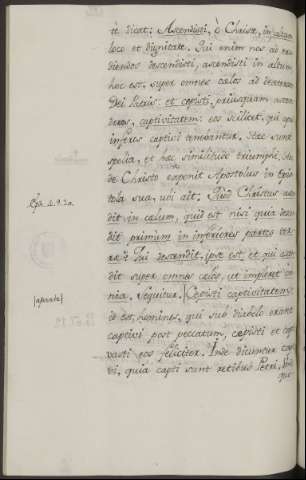 te dicat: Ascendisti, ò Christe, in altum
loco et dignitate. Qui enim nos ad
diendos descendisti, ascendisti in altum
hoc est, super omnes cælos ad dexteram
Dei Patris: et cepisti, priusquam ascen
deres, captivitatem: eos scilicet, qui apu
inferos captivi tenebantur. Hæc sunt
spolia, et hæc similitudo triumphi. Ita
de Christo exponit Apostolus in Epis
tola sua, ubi ait: Quòd Christus ascen
Eph. 4. 9. 10.
dit in cælum, quid est nisi quia descen
dit primum in inferiores partes ter
ræ? Qui descendit, ipse est, et qui ascen
dit super omnes cælos, ut impleret om
nia. Sequitur. [Cepisti captivitatem:
[aparte]
id est, homines, qui sub diabolo erant
captivi post peccatum, cepisti et cap
vasti eos feliciter. Inde dicuntur capti
vi, quia capti sunt retibus Petri,